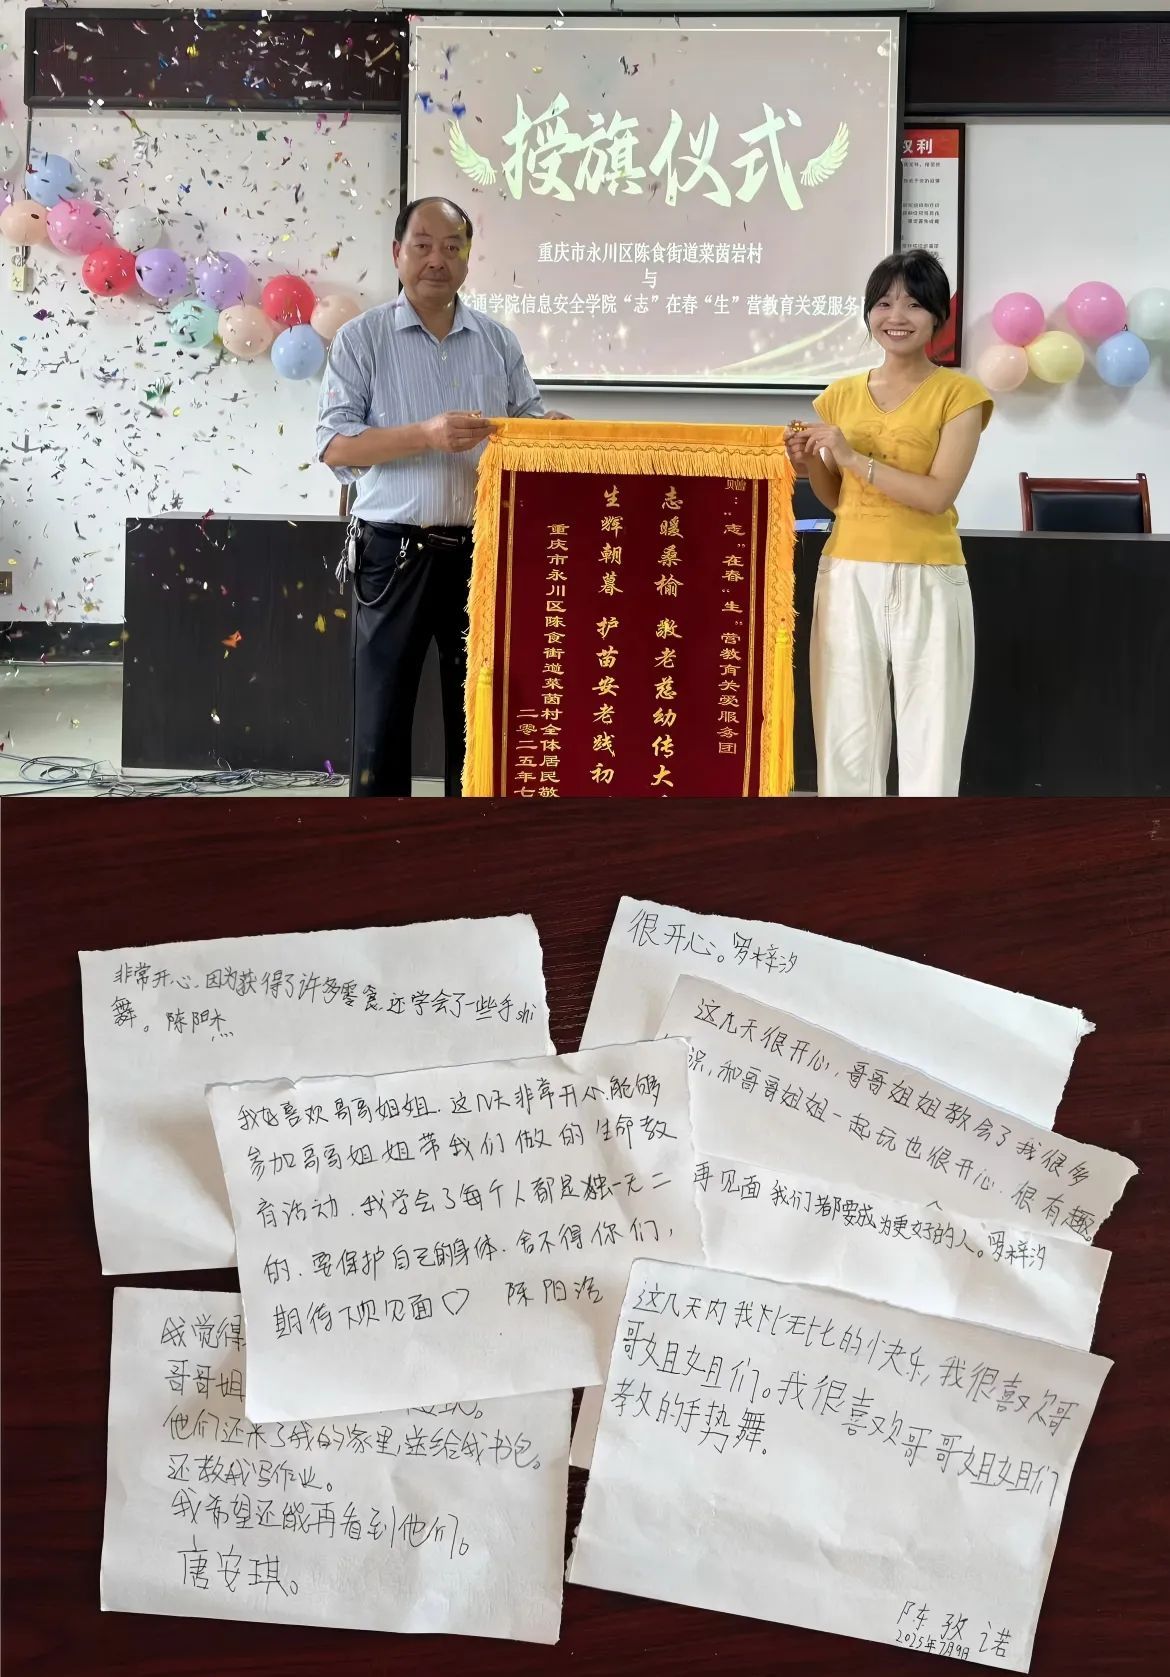 授旗仪式
重庆市永川区陈食街道菜茵岩村
与
通学院信息安全学院“志”在春“生”营教育关爱服务
权利
赠：“志”在春“生”营教育关爱服务团
志暖桑榆 敬老慈幼传大
生辉朝暮 护苗安老践初
重庆市永川区陈食街道菜茵村全体居民敬
二零二五年七
非常开心，因为获得了许多零食，还学会了一些手shi
舞。陈阳杰
很开心。罗梓汐
这几天很开心，哥哥姐姐教会了我很多
识，和哥哥姐姐一起玩也很开心，很有趣。
再见面 我们都要成为更好的人。罗梓汐
我好喜欢哥哥姐姐，这几天非常开心，能够
参加哥哥姐姐带我们做的生命教
育活动，我学会了每个人都是独一无二
的，要保护自己的身体，舍不得你们，
期待下次见面♡ 陈阳洛
我觉得
哥哥姐
他们还来了我的家里，送给我书包。
还教我写作业。
我希望还能再看到他们。
唐安琪。
这几天内我无比的快乐，我很喜欢哥
哥姐姐们。我很喜欢哥哥姐姐们
教的手势舞。
陈孜诺
2025年7月9日